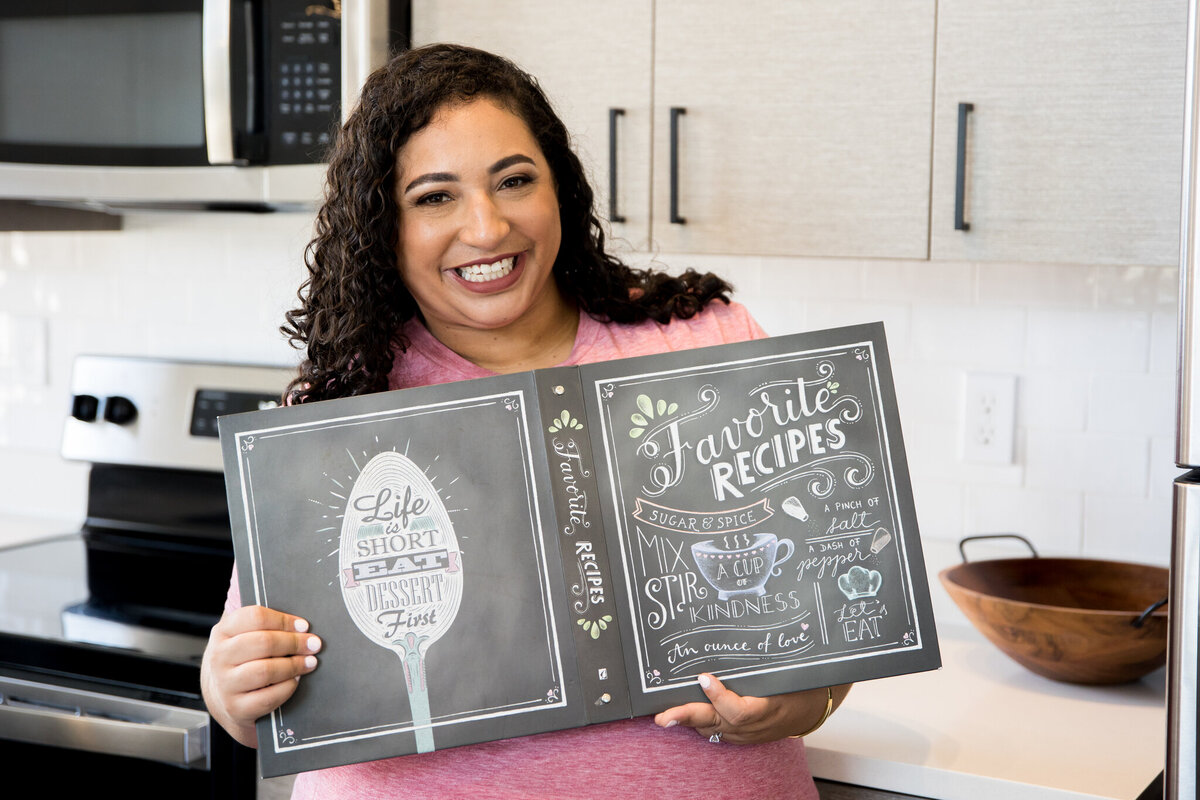 Life
is
SHORT
EAT
DESSERT
First
Favorite
RECIPES
Favorite
RECIPES
SUGAR & SPICE
MIX
STIR
A CUP
OF
KINDNESS
An ounce of love
A PINCH OF
salt
A DASH OF
pepper
LET'S
EAT